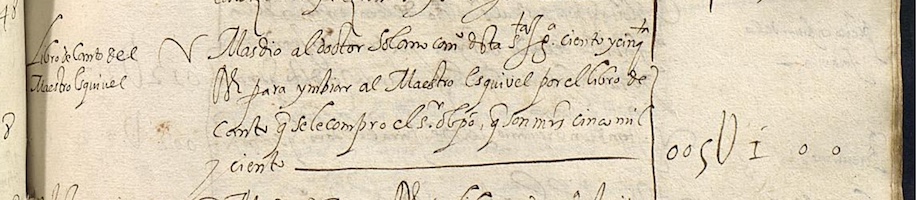 Libro de Canto del
Maestro Esquivel
Mas dio al doctor Solano canº desta sta yga. ciento y cinqta
Rs para ymbiar al Maestro Esquivel por el libro de
Canto q se le compro el s. obpo, q son mrs cinco mil
y ciento
005U100